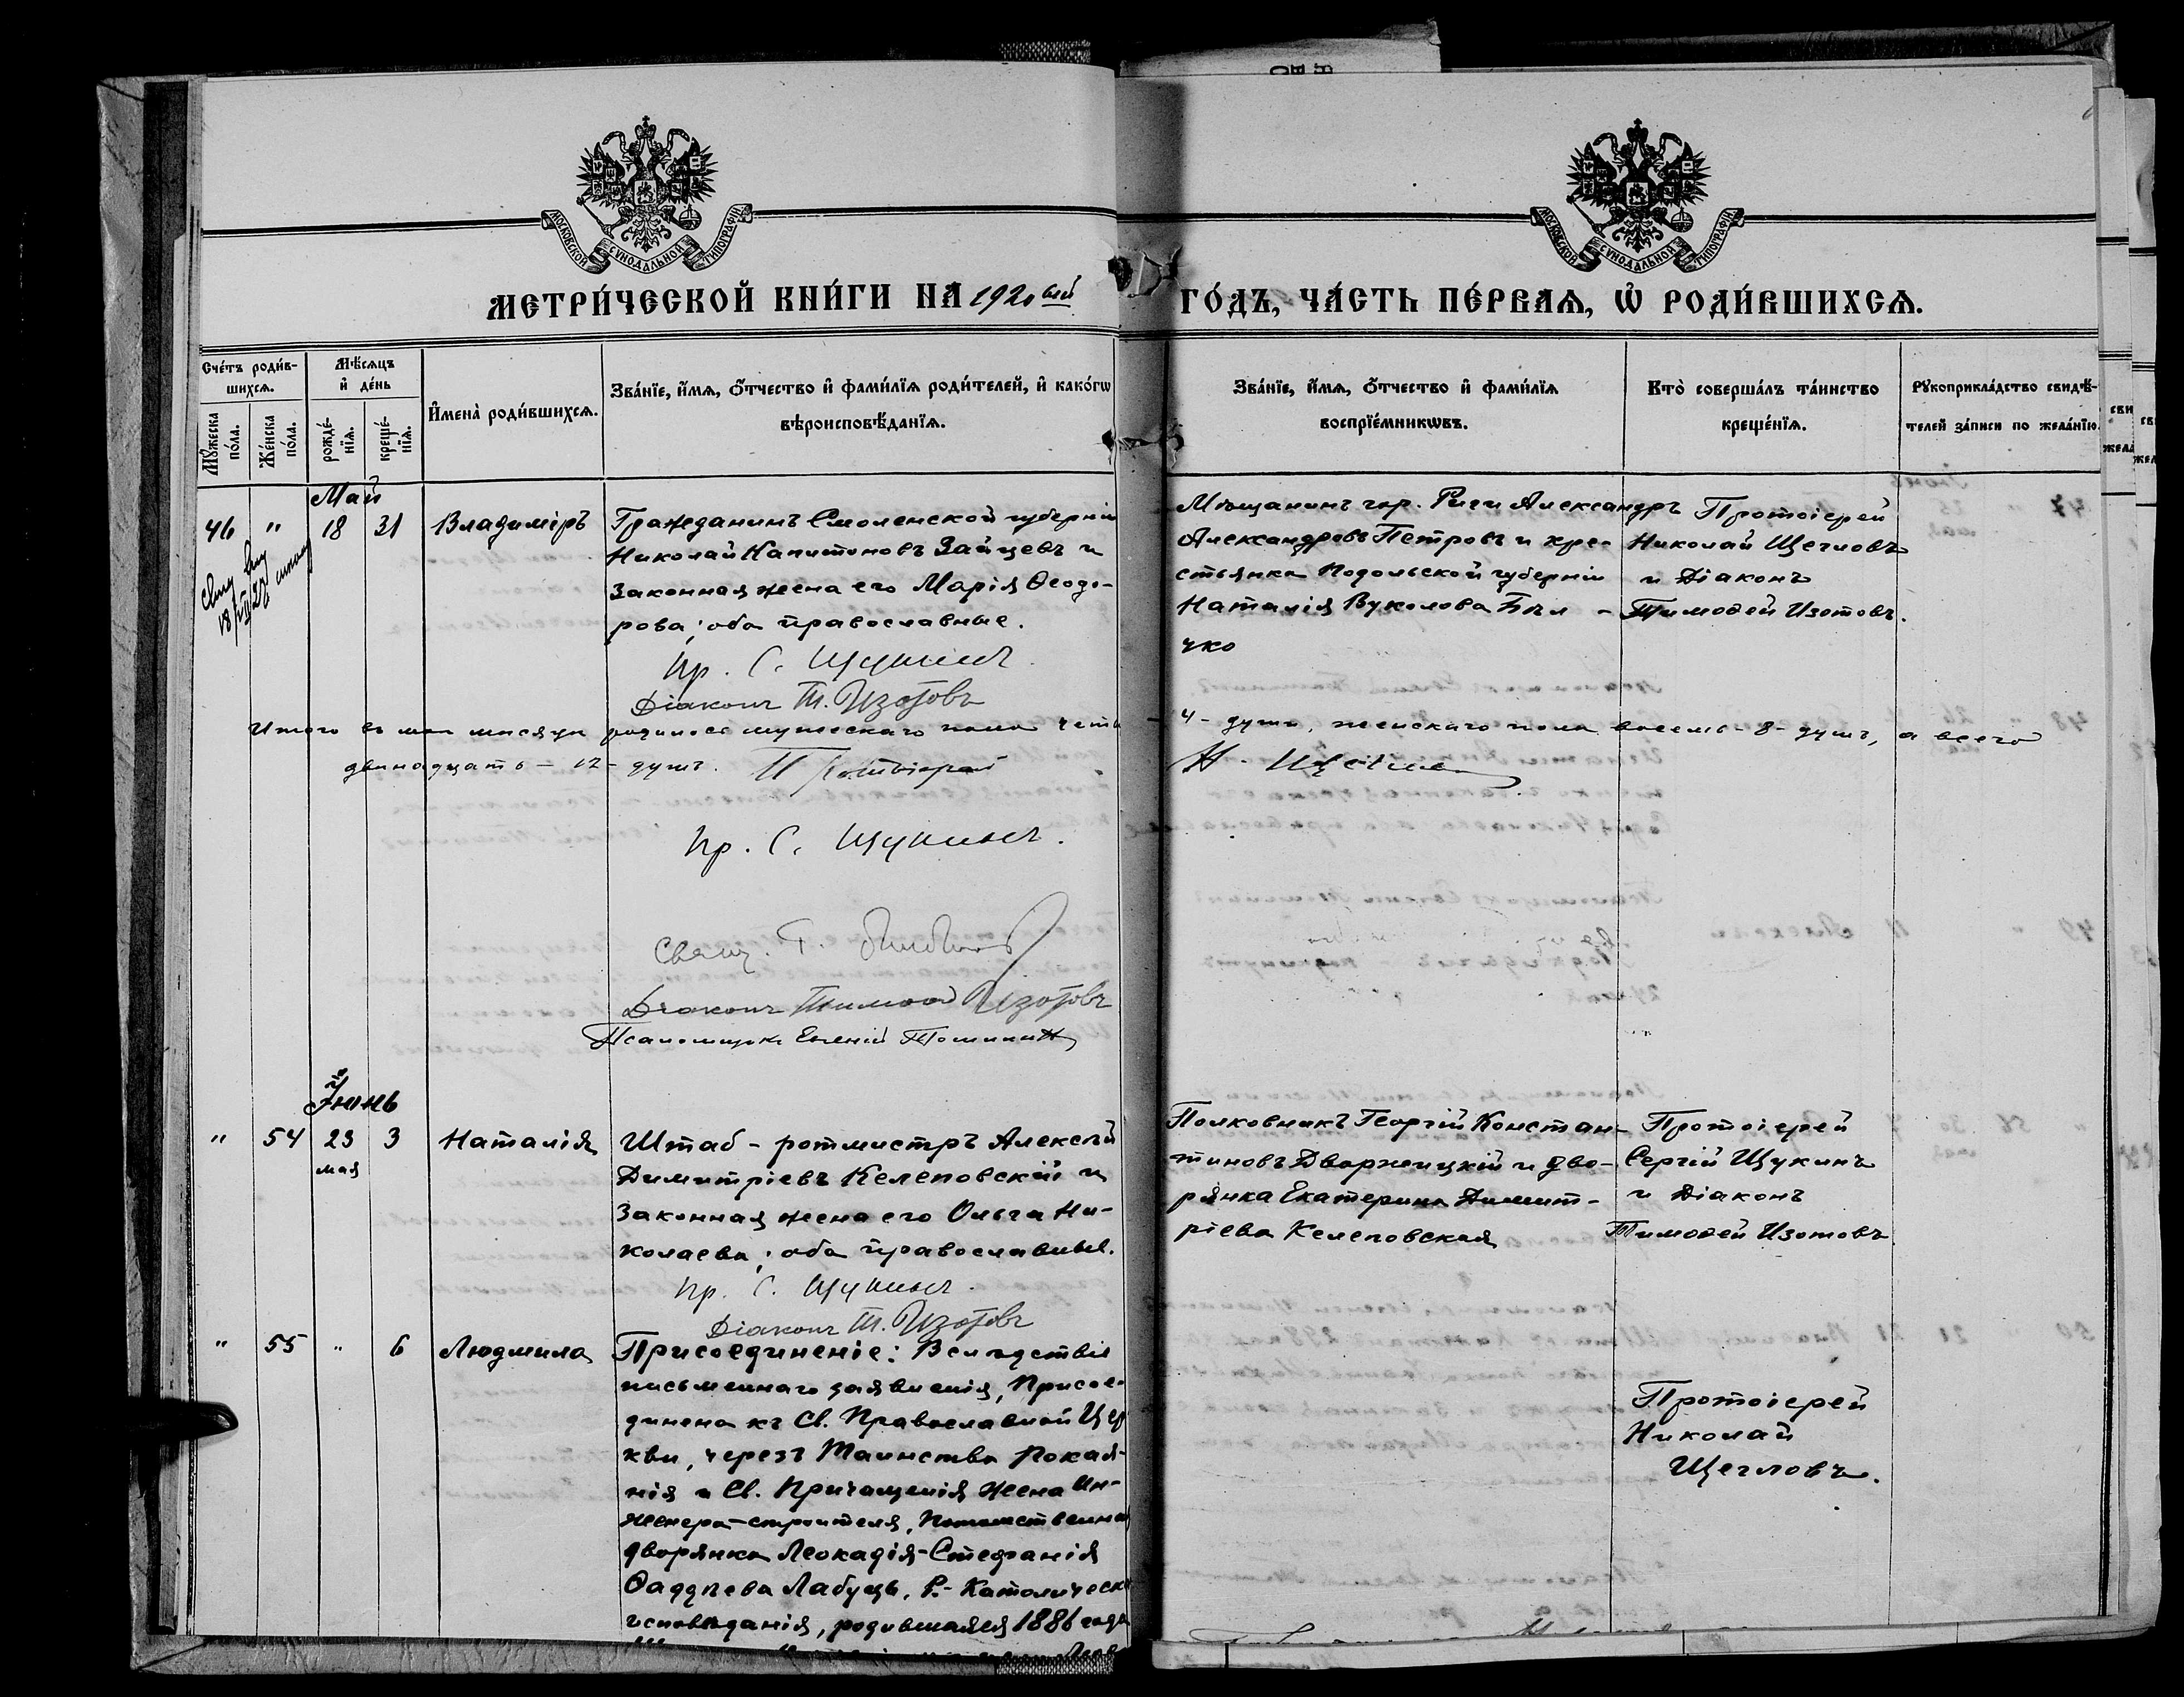 МОСКОВСКОЙ СѴНОДАЛЬНОЙ ТИПОГРАФІИ
МОСКОВСКОЙ СѴНОДАЛЬНОЙ ТИПОГРАФІИ
МЕТРИ́ЧЕСКОЙ КНИ́ГИ НА 1920ый
ГО́ДЪ, ЧА́СТЬ ПЕ́РВАѦ, Ѡ҆ РОДИ́ВШИХСѦ.
Сче́тъ роди́в-
шихсѧ.
Мꙋ́жеска
по́ла.
Же́нска
по́ла.
Мѣ́сѧцъ
и҆ де́нь
рожде́-
нїѧ.
креще́-
нїѧ.
И҆мена̀ роди́вшихсѧ.
Зва́нїе, и҆́мѧ, ѻ҆́тчество и҆ фами́лїѧ роди́телей, и҆ како́гѡ
вѣроисповѣ́данїѧ.
Зва́нїе, и҆́мѧ, ѻ҆́тчество и҆ фами́лїѧ
воспрїе́мникѡвъ.
Кто̀ соверша́лъ та́инство
креще́нїѧ.
Рꙋкоприкла́дство свидѣ́-
телей за́писи по жела́нїю.
Май
46 " 18 31 Владиміръ
Гражданинъ Смоленской губерніи
Николай Капитоновъ Зайцевъ и
законная жена его Марія Ѳеодо-
рова; оба православные.
Пр. С. Щукинъ.
Діаконъ Т. Изотовъ
Мѣщанинъ гор. Риги Александръ
Александровъ Петровъ и кре-
стьянка Подольской губерніи
Наталія Вуколова Бѣл-
чко
Протоіерей
Николай Щегловъ
и Діаконъ
Тимоѳей Изотовъ.
Итого въ маѣ мѣсяцѣ родилось мужескаго пола четы 4 - душъ, женскаго пола восемь - 8 - душъ, а всего
двѣнадцать - 12 - душъ. Протоіерей Н. Щегловъ
Пр. С. Щукинъ.
Свящ. Г.
Діаконъ Тимоѳей Изотовъ
Псаломщикъ Евгеній
Іюнь
" 54 23 3 Наталія
мая
Штаб-ротмистръ Алексѣй
Димитріевъ Келеповскій и
законная жена его Ольга Ни-
колаева; оба православные.
Пр. С. Щукинъ.
Діаконъ Т. Изотовъ
Полковникъ Георгій Констан-
тиновъ Дворжицкій и дво-
рянка Екатерина Димит-
ріева Келеповская
Протоіерей
Сергій Щукинъ
и Діаконъ
Тимоѳей Изотовъ
" 55 " 6 Людмила
Присоединеніе: Вслѣдствіе
письменнаго заявленія, Присое-
динена къ Св. Православной Цер
кви, черезъ Таинства Покая-
нія и Св. Причащенія жена Ин-
женера-строителя, Потомственная
дворянка Леокадія-Стефанія
Ѳаддѣева Лабуць, Р.-Католическ
исповѣданія, родившаяся 1886 года
Протоіерей
Николай
Щегловъ.